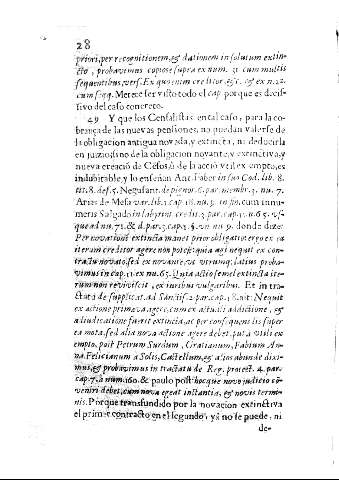 28
priori, per recognitionem, & dationem in solutum extin-
cto, probavimus copiose supra ex num. 31 cum multis
sequentibus, vers. Ex quo enim creditor. & ex n.22.
cum seqq. Merece ser visto todo el cap. porque es decis-
sivo del caso concreto.
49 Y que los Censalistas en tal caso, para la co-
brança de las nuevas pensiones, no puedan valerse de
la obligacion antigua novada, y extincta, ni deducirla
en juizio, sino de la obligacion novante, y extinctiva, y
nueva creació de Césos, ò de la acció vtil ex empto, es
indubitable, y lo enseñan Ant. Faber in suo Cod. lib. 8.
tit. 8. def. 5. Negusant. de pignor. 6. par. membr. 3. nu. 7.
Arias de Mesa var. lib. 1. cap. 18. nu. 3. in pr. cum innu-
meris Salgado in labyrint. credit. 3. par. cap. nu. 65. vs-
que ad nu. 71. & d. par. 3. cap. nu. 9. donde dize:
Per novationé extincta manet prior obligatio: ergo ex ea
iterum creditor agere non potest, quia agi nequit ex con-
tractu novato, sed ex novante, vt virumq; latius proba-
vimus in cap. 11. ex nu. 65. Quia actio semel extincta ite-
rum non reviviscit, ex iuribus vulgaribus. Et in tra-
ctatu de supplicat. ad Sanctis. 2. par. cap. 18. ait: Nequit
ex actione primeva agere, cum ex actuali addictione, &
adiudicatione fuerit extincta, ac per consequens lis super
ea mota, sed alia nova actione agere debet, puta vtili ex
empto, post Petrum Surdum, Gratianum, Fabium An-
na, Felicianum a Solis, Castellum, & alios abunde dixi-
mus, & probavimus in tractatu de Reg. protect. 4. par.
cap. 7. à num. 160. & paulo post: hocque novo judicio có-
veniri debet, cum nova egeat instantia, & novis termi-
nis. Porque transfundido por la novacion extinctiva
el primer contracto en el segundo, yà no se puede, ni
de-